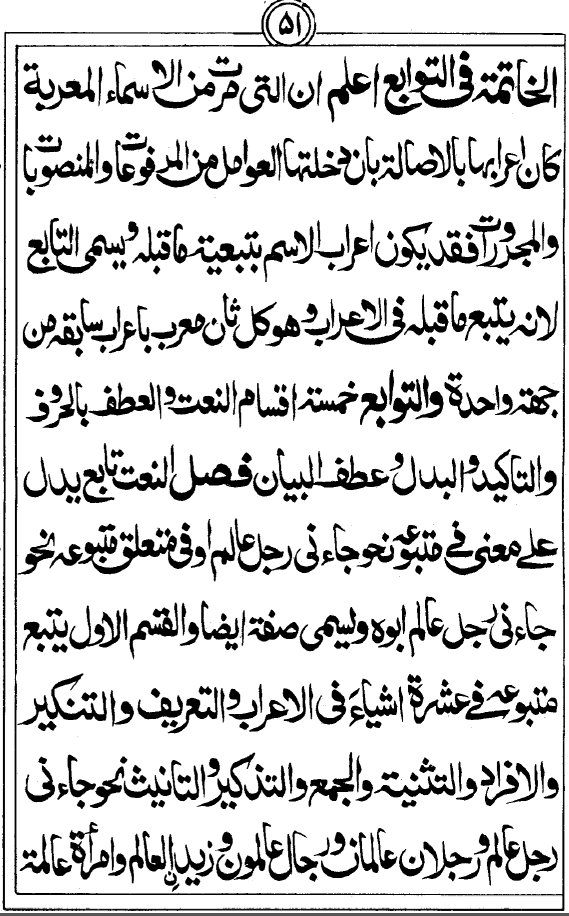 ٥١
الخاتمة فى التوابع اعلم ان التى مرت من الاسماء المعربة
كان اعرابها بالاصالة بان دخلتها العوامل من المرفوعات والمنصوبات
والمجرورات فقد يكون اعراب الاسم بتبعية ماقبله ويسمى التابع
لانه يتبع ماقبله فى الاعراب وهو كل ثان معرب باعراب سابقه من
جهة واحدة والتوابع خمسة اقسام النعت والعطف بالحروف
والتاكيد والبدل وعطف البيان فصل النعت تابع يدل
على معنى فى متبوعه نحو جاءنى رجل عالم او فى متعلق متبوعه نحو
جاءنى رجل عالم ابوه ويسمى صفة ايضا والقسم الاول يتبع
متبوعه فى عشرة اشياء فى الاعراب والتعريف والتنكير
والافراد والتثنية والجمع والتذكير والتانيث نحو جاءنى
رجل عالم ورجلان عالمان ورجال عالمون وزيدن العالم وامرأة عالمة